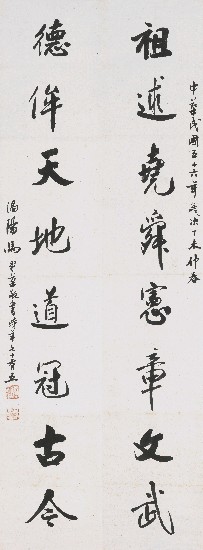 中華民國五十六年歲次丁未仲春
祖述堯舜憲章文武
德侔天地道冠古今
馮敬書時年七十有五